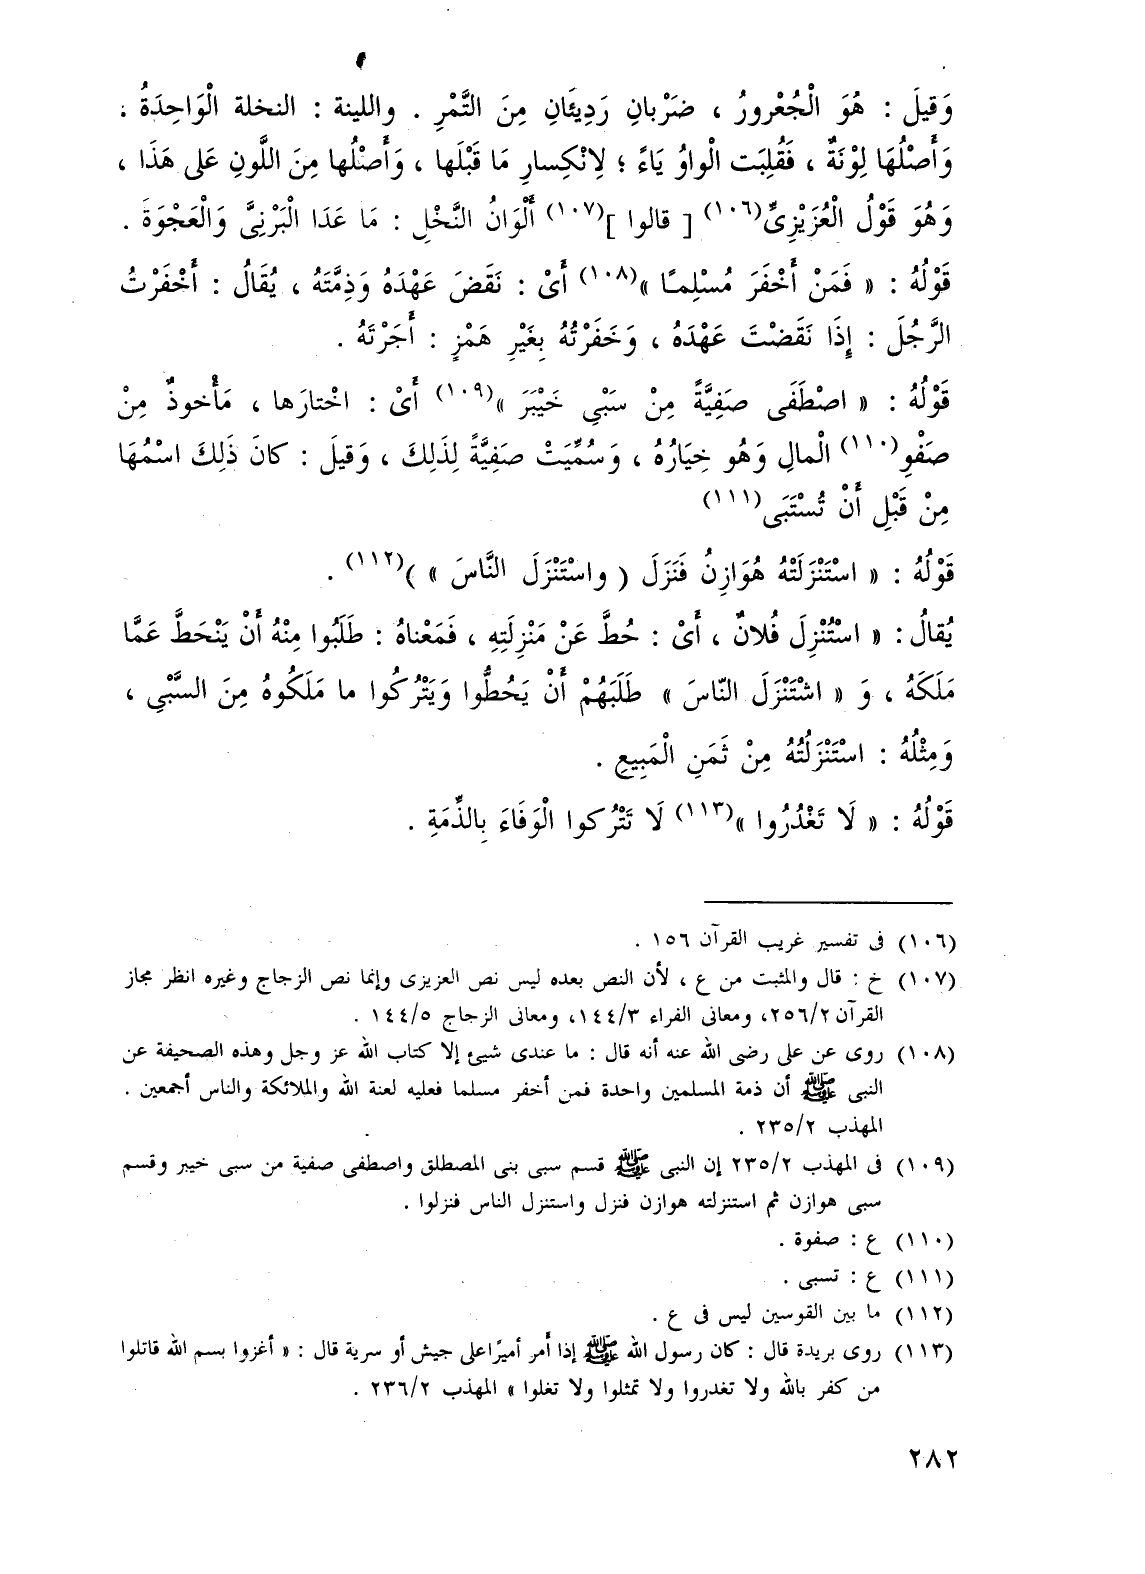 وَقيلَ : هُوَ الْجُعْرورُ ، ضَرْبانِ رَدِيئَانِ مِنَ التَّمْرِ . واللينة : النخلة الْوَاحِدَةُ :
وَأَصْلُهَا لِوْنَةٌ ، فَقُلِبَت الْواوُ يَاءً ؛ لِانْكِسارِ مَا قَبْلَها ، وَأَصْلُها مِنَ اللَّونِ عَلى هَذَا ،
وَهُوَ قَوْلُ الْعُزَيْزِىِّ(١٠٦) [ قالوا ](١٠٧) أَلْوَانُ النَّخْلِ : مَا عَدَا الْبَرْنِىَّ وَالْعَجْوَةَ .
قَوْلُهُ : « فَمَنْ أَخْفَرَ مُسْلِمـًا »(١٠٨) أَىْ : نَقَضَ عَهْدَهُ وَذِمَّتَهُ ، يُقَالُ : أَخْفَرْتُ
الرَّجُلَ : إِذَا نَقَضْتَ عَهْدَهُ ، وَخَفَرْتُهُ بِغَيْرِ هَمْزٍ : أَجَرْتَهُ .
قَوْلُهُ : « اصْطَفَى صَفِيَّةً مِنْ سَبْىِ خَيْبَرَ »(١٠٩) أَىْ : اخْتارَها ، مَأْخوذٌ مِنْ
صَفْوِ(١١٠) الْمالِ وَهُو خِيَارُهُ ، وَسُمِّيَتْ صَفِيَّةً لِذَلِكَ ، وَقيلَ : كانَ ذَلِكَ اسْمُهَا
مِنْ قَبْلِ أَنْ تُسْتَبَى(١١١)
قَوْلُهُ : « اسْتَنْزَلَتْهُ هُوَازِنُ فَنَزَلَ ( واسْتَنْزَلَ النَّاسَ » )(١١٢) .
يُقالُ : « اسْتُنْزِلَ فُلانٌ ، أَىْ : حُطَّ عَنْ مَنْزِلَتِهِ ، فَمَعْناهُ : طَلَبُوا مِنْهُ أَنْ يَنْحَطَّ عَمَّا
مَلَكَهُ ، وَ « اسْتَنْزَلَ النّاسَ » طَلَبَهُمْ أَنْ يَحُطُّوا وَيَتْرُكُوا ما مَلَكُوهُ مِنَ السَّبْىِ ،
وَمِثْلُهُ : اسْتَنْزَلْتُهُ مِنْ ثَمَنِ الْمَبِيعِ .
قَوْلُهُ : « لَا تَغْدُرُوا »(١١٣) لَا تَتْرُكوا الْوَفَاءَ بِالذِّمَةِ .
(١٠٦) فى تفسير غريب القرآن ١٥٦ .
(١٠٧) خ : قال والمثبت من ع ، لأن النص بعده ليس نص العزيزى وإنما نص الزجاج وغيره انظر مجاز
القرآن ٢٥٦/٢، ومعانى الفراء ١٤٤/٣، ومعانى الزجاج ١٤٤/٥ .
(١٠٨) روى عن على رضى الله عنه أنه قال : ما عندى شيئ إلا كتاب الله عز وجل وهذه الصحيفة عن
النبى ﷺ أن ذمة المسلمين واحدة فمن أخفر مسلما فعليه لعنة الله والملائكة والناس أجمعين .
المهذب ٢٣٥/٢ .
(١٠٩) فى المهذب ٢٣٥/٢ إن النبى ﷺ قسم سبى بنى المصطلق واصطفى صفية من سبى خيبر وقسم
سبى هوازن ثم استنزلته هوازن فنزل واستنزل الناس فنزلوا .
(١١٠) ع : صفوة .
(١١١) ع : تسبى .
(١١٢) ما بين القوسين ليس فى ع .
(١١٣) روى بريدة قال : كان رسول الله ﷺ إذا أمر أميرًا على جيش أو سرية قال : « أغزوا بسم الله قاتلوا
من كفر بالله ولا تغدروا ولا تمثلوا ولا تغلوا » المهذب ٢٣٦/٢ .
٢٨٢